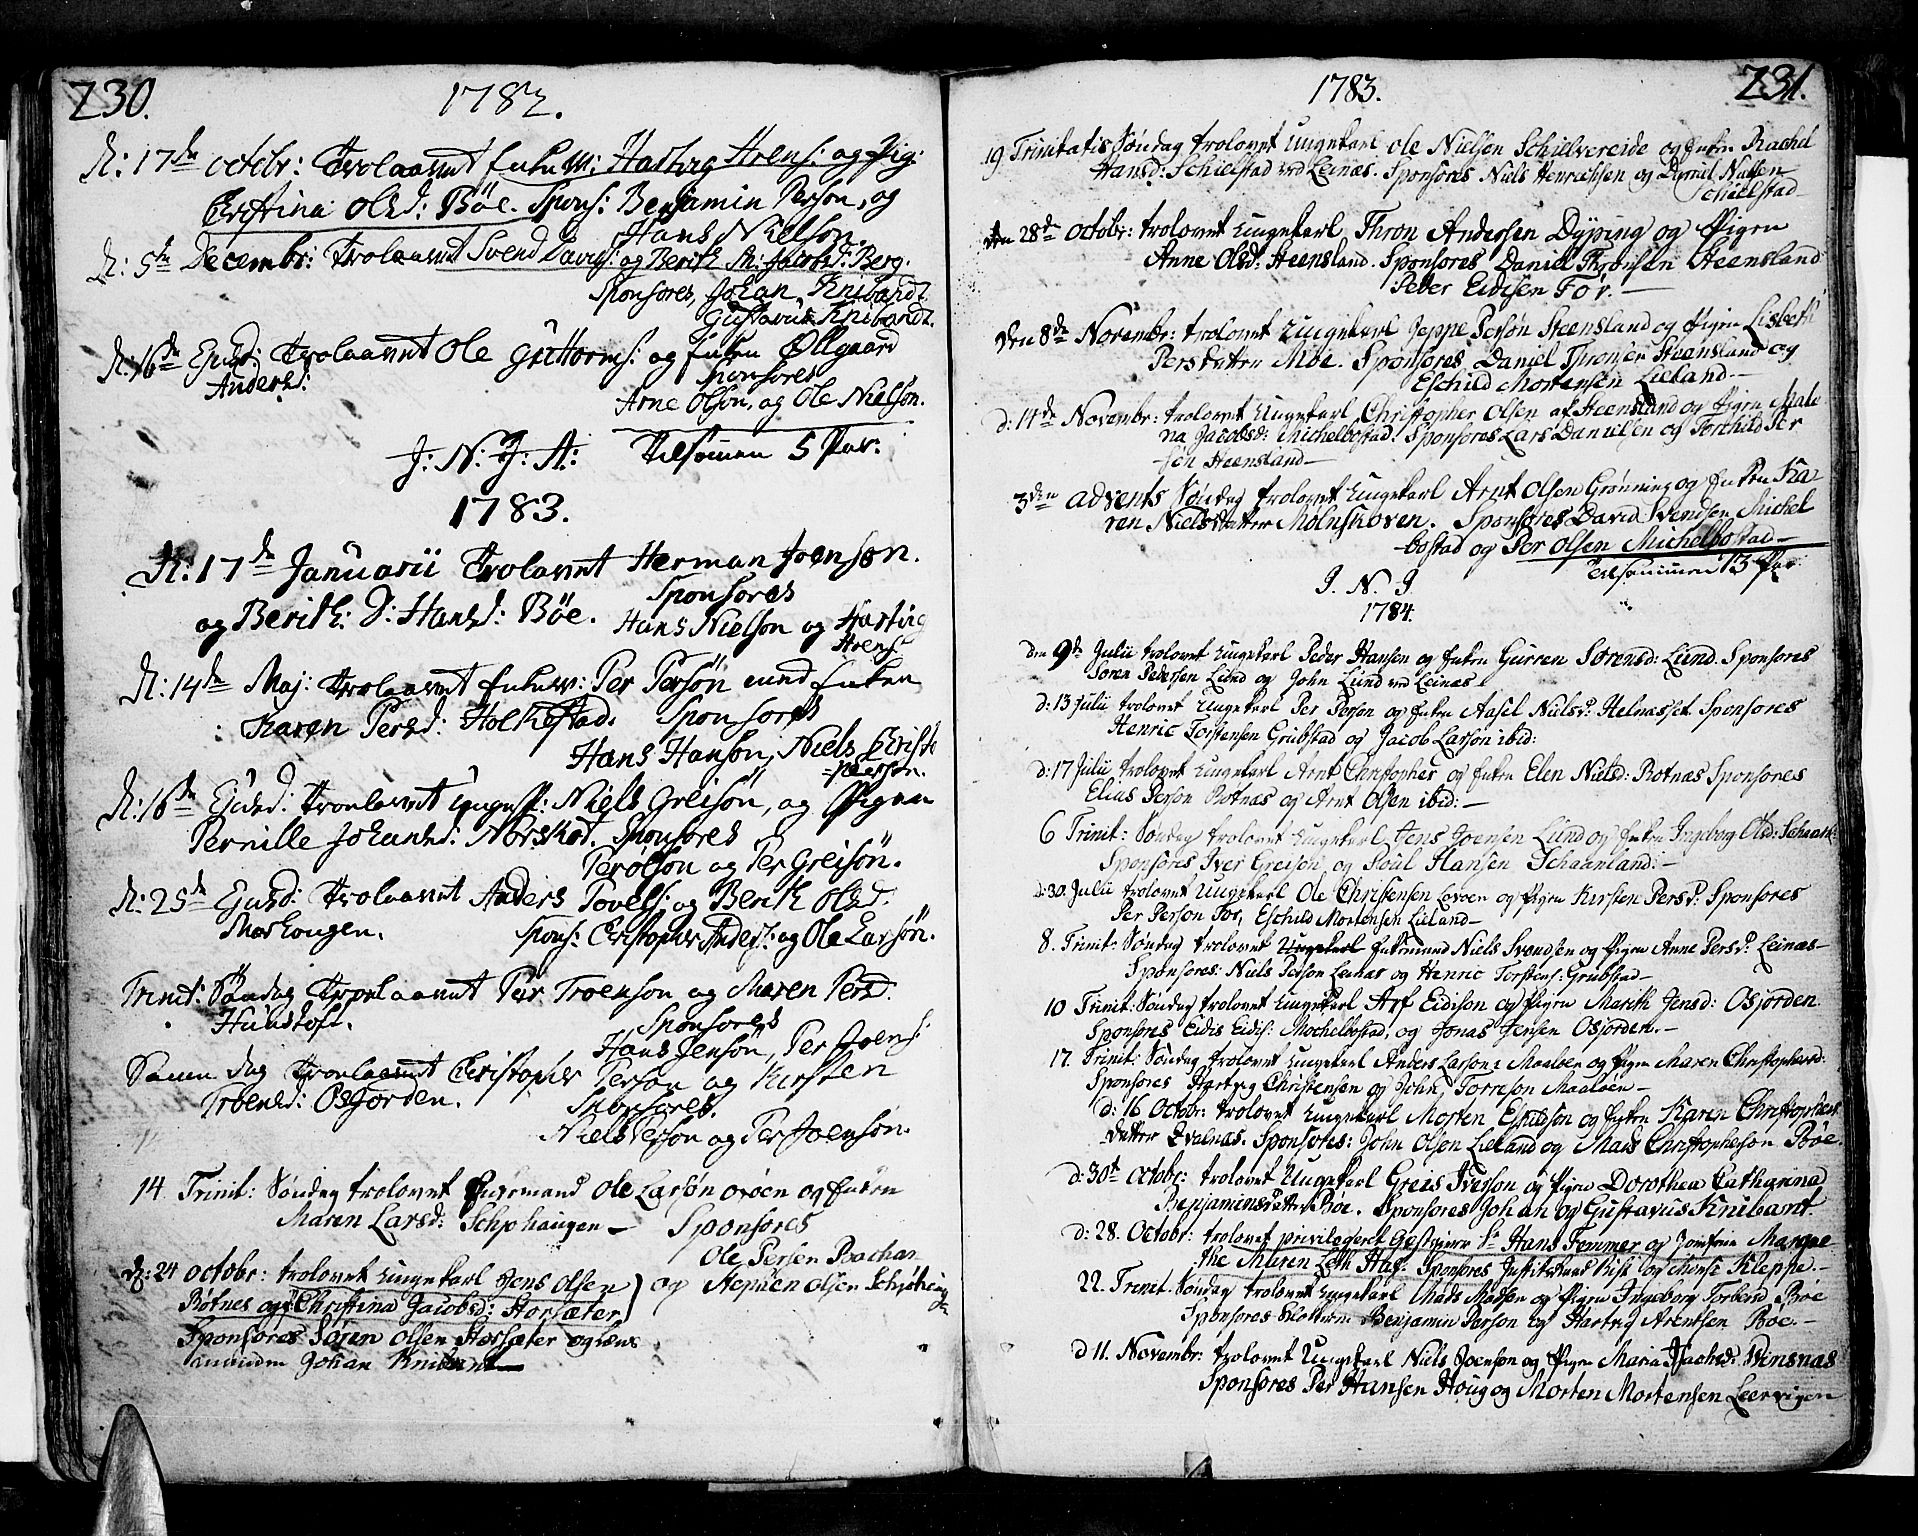 230.
1782.
d: 17de octobr: Trolaavnt Enkem: Hartvig Arens: og Pig:
Christina Olsd: Böe. Spons: Benjamin Person, og
Hans Nielson.
d: 5te Decembr: Trolaavnt Svend Davids: og Berith M: Jacobsd: Berg.
Sponsores, Johan Knibandt
Gustavus Knibandt.
d: 16de Ejusd: Trolaavnt Ole Guttorms: og Enken Ollgaard
Andersd:
Sponsores
Arne Olson, og Ole Nielson.
J: N: J: A: Tilsamen 5 Par.
1783.
d: 17de Januarii Trolaavnt Herman Joenson.
Sponsores
og Berith: D: Hansd: Böe. Hans Nielson og Hartvig
Arens:
d: 14de Maj: Trolaavnt Enkem: Per Persön med Enken
Karen Persd: Holkestad. Sponsores
Hans Hanson, Niels Christo
=pherson.
d: 16de Ejusd: Trolaavnt Ungk: Niels Greisön, og Pigen
Pernille Johansd: Norskot. Sponsores
Per Olson og Per Greisön.
d: 25de Ejusd: Trolaavnt Anders Povels: og Berith Olsd:
Marhougen. Spons: Christopher Anders: og Ole Larsön.
Trinit: Söndag Trolaavnt Per Troenson og Maren Persd:
Hundstoft.
Sponsores
Hans Jensön, Per Joens:
Samme dag Trolaavnt Christopher Person og Kirsten
Troensd: Osjorden. Sponsores.
Niels Person og Per Joenson.
14 Trinit: Söndag trolovet Enkemand Ole Larsön oröen og Enken
Maren Larsd: Schphaugen — Sponsores
Ole Persen Bachan
d: 24 octobr: trolovet Ungekarl Jens Olsen og Stephen Olsen Schjöthei
Rötnes og P: Christina Jacobsd: Storsæter
Sponsores Sören Olsen Storsæter og Lens
manden Johan Knibant
1783.
231.
19 Trinitatis Söndag trolovet Ungekarl Ole Nielsen Schielvereide og Enken Rachel
Hansd: Schielstad ved Leinæs. Sponsores Niels Henrichsen og Daniel Nielsen
Schielstad
den 28de Octobr: trolovet Ungekarl Thron Andersen Dÿping og Pigen
Anne Olsd: Steensland. Sponsores Daniel Thronsen Steensland
Peder Eidisen For. —
Den 8de Novembr: trolovet Ungekarl Jeppe Persön Steensland og Pigen Lisbeth
Persdatter Moe. Sponsores Daniel Thronsen Steensland og
Eschild Mortensen Lieland —
d: 14de Novembr: trolovet Ungekarl Christopher Olsen af Steensland og Pigen Male
na Jacobsd: Michelbostad. Sponsores Lars Danielsen og Torchild Per
sön Steensland —
3den advents Söndag trolovet Ungekarl Arnt Olsen Grönning og Enken Ka
ren Nielsdatter Mölnskoven. Sponsores David Svendsen Michel
bostad og Per Olsen Michelbostad —
Tilsammen 13 Par
J. N. J
1784.
den 9de Julii trolovet Ungekarl Peder Hansen og Enken Gurren Sörensd: Lund. Sponsores
Sören Pedersen Lund og John Lund ved Leinæs.
d: 13 Julii trolovet Ungekarl Per Person og Enken Aasel Nielsd: Helnæsset. Sponsores
Henric Torstensen Grubstad og Jacob Larsön ibid:
d: 17 Julii trolovet Ungekarl Arnt Christopher og Enken Elen Nielsd: Rotnæs Sponsores
Elias Person Rotnæs og Arnt Olsen ibid: —
6 Trinit: Söndag trolovet Ungekarl Jens Joensen Lund og Enken Ingeborg Olsd: Schaanl:
Sponsores Iver Greison og Poul Hansen Schaanland: —
d: 30 Julii trolovet Ungekarl Ole Christensen Lovöen og Pigen Kirsten Persd: Sponsores
Per Person For, Eschild Mortensen Lieland —
8. Trinit: Söndag trolovet Ungekarl Enkemand Niels Svendsen og Pigen Anne Persd: Leinæs —
Sponsores: Niels Person Leinæs og Henric Torstens: Grubstad —
10 Trinit: Söndag trolovet Ungekarl Arf Eidison og Pigen Marith Jensd: Osjorden
Sponsores Eidis Eidis: Mochelbostad, og Jonas Jensen Osjorden. —
17. Trinit: Söndag trolovet Ungekarl Anders Larson: Maaloen og Pigen Maren Christophersd:
Sponsores Hartvig Christensen og John Torreson Maaloen —
d: 16 Octobr: trolovet Ungekarl Morten Eschildson og Enken Karen Christophers
datter Evelnæs. Sponsores: John Olsen Lieland og Mads Christopherson Böe.
d: 30te Octobr: trolovet Ungekarl Greis Iverson og Pigen Dorothea Catharina
Benjaminsdatter Böe. Sponsores Johan og Gustavus Knibant.
d: 28. Octobr: trolovet privilegeret Gestgiver Sr Hans Femmer og Jomfrue Margre
the Maren Leth Hag: Sponsores Justitsraad Risk og Monsr Kleppe. —
22. Trinit. Söndag trolovet Ungekarl Mads Madsen og Pigen Ingeborg Torbensd Böe
Sponsores Benjamin Person og Hartvig Arentsen Böe. —
d 11. Novembr: trolovet Ungekarl Niels Joenson og Pigen Maria Isachsd: Vinsnæs
Sponsores Per Hansen Houg og Morten Mortensen Leervigen